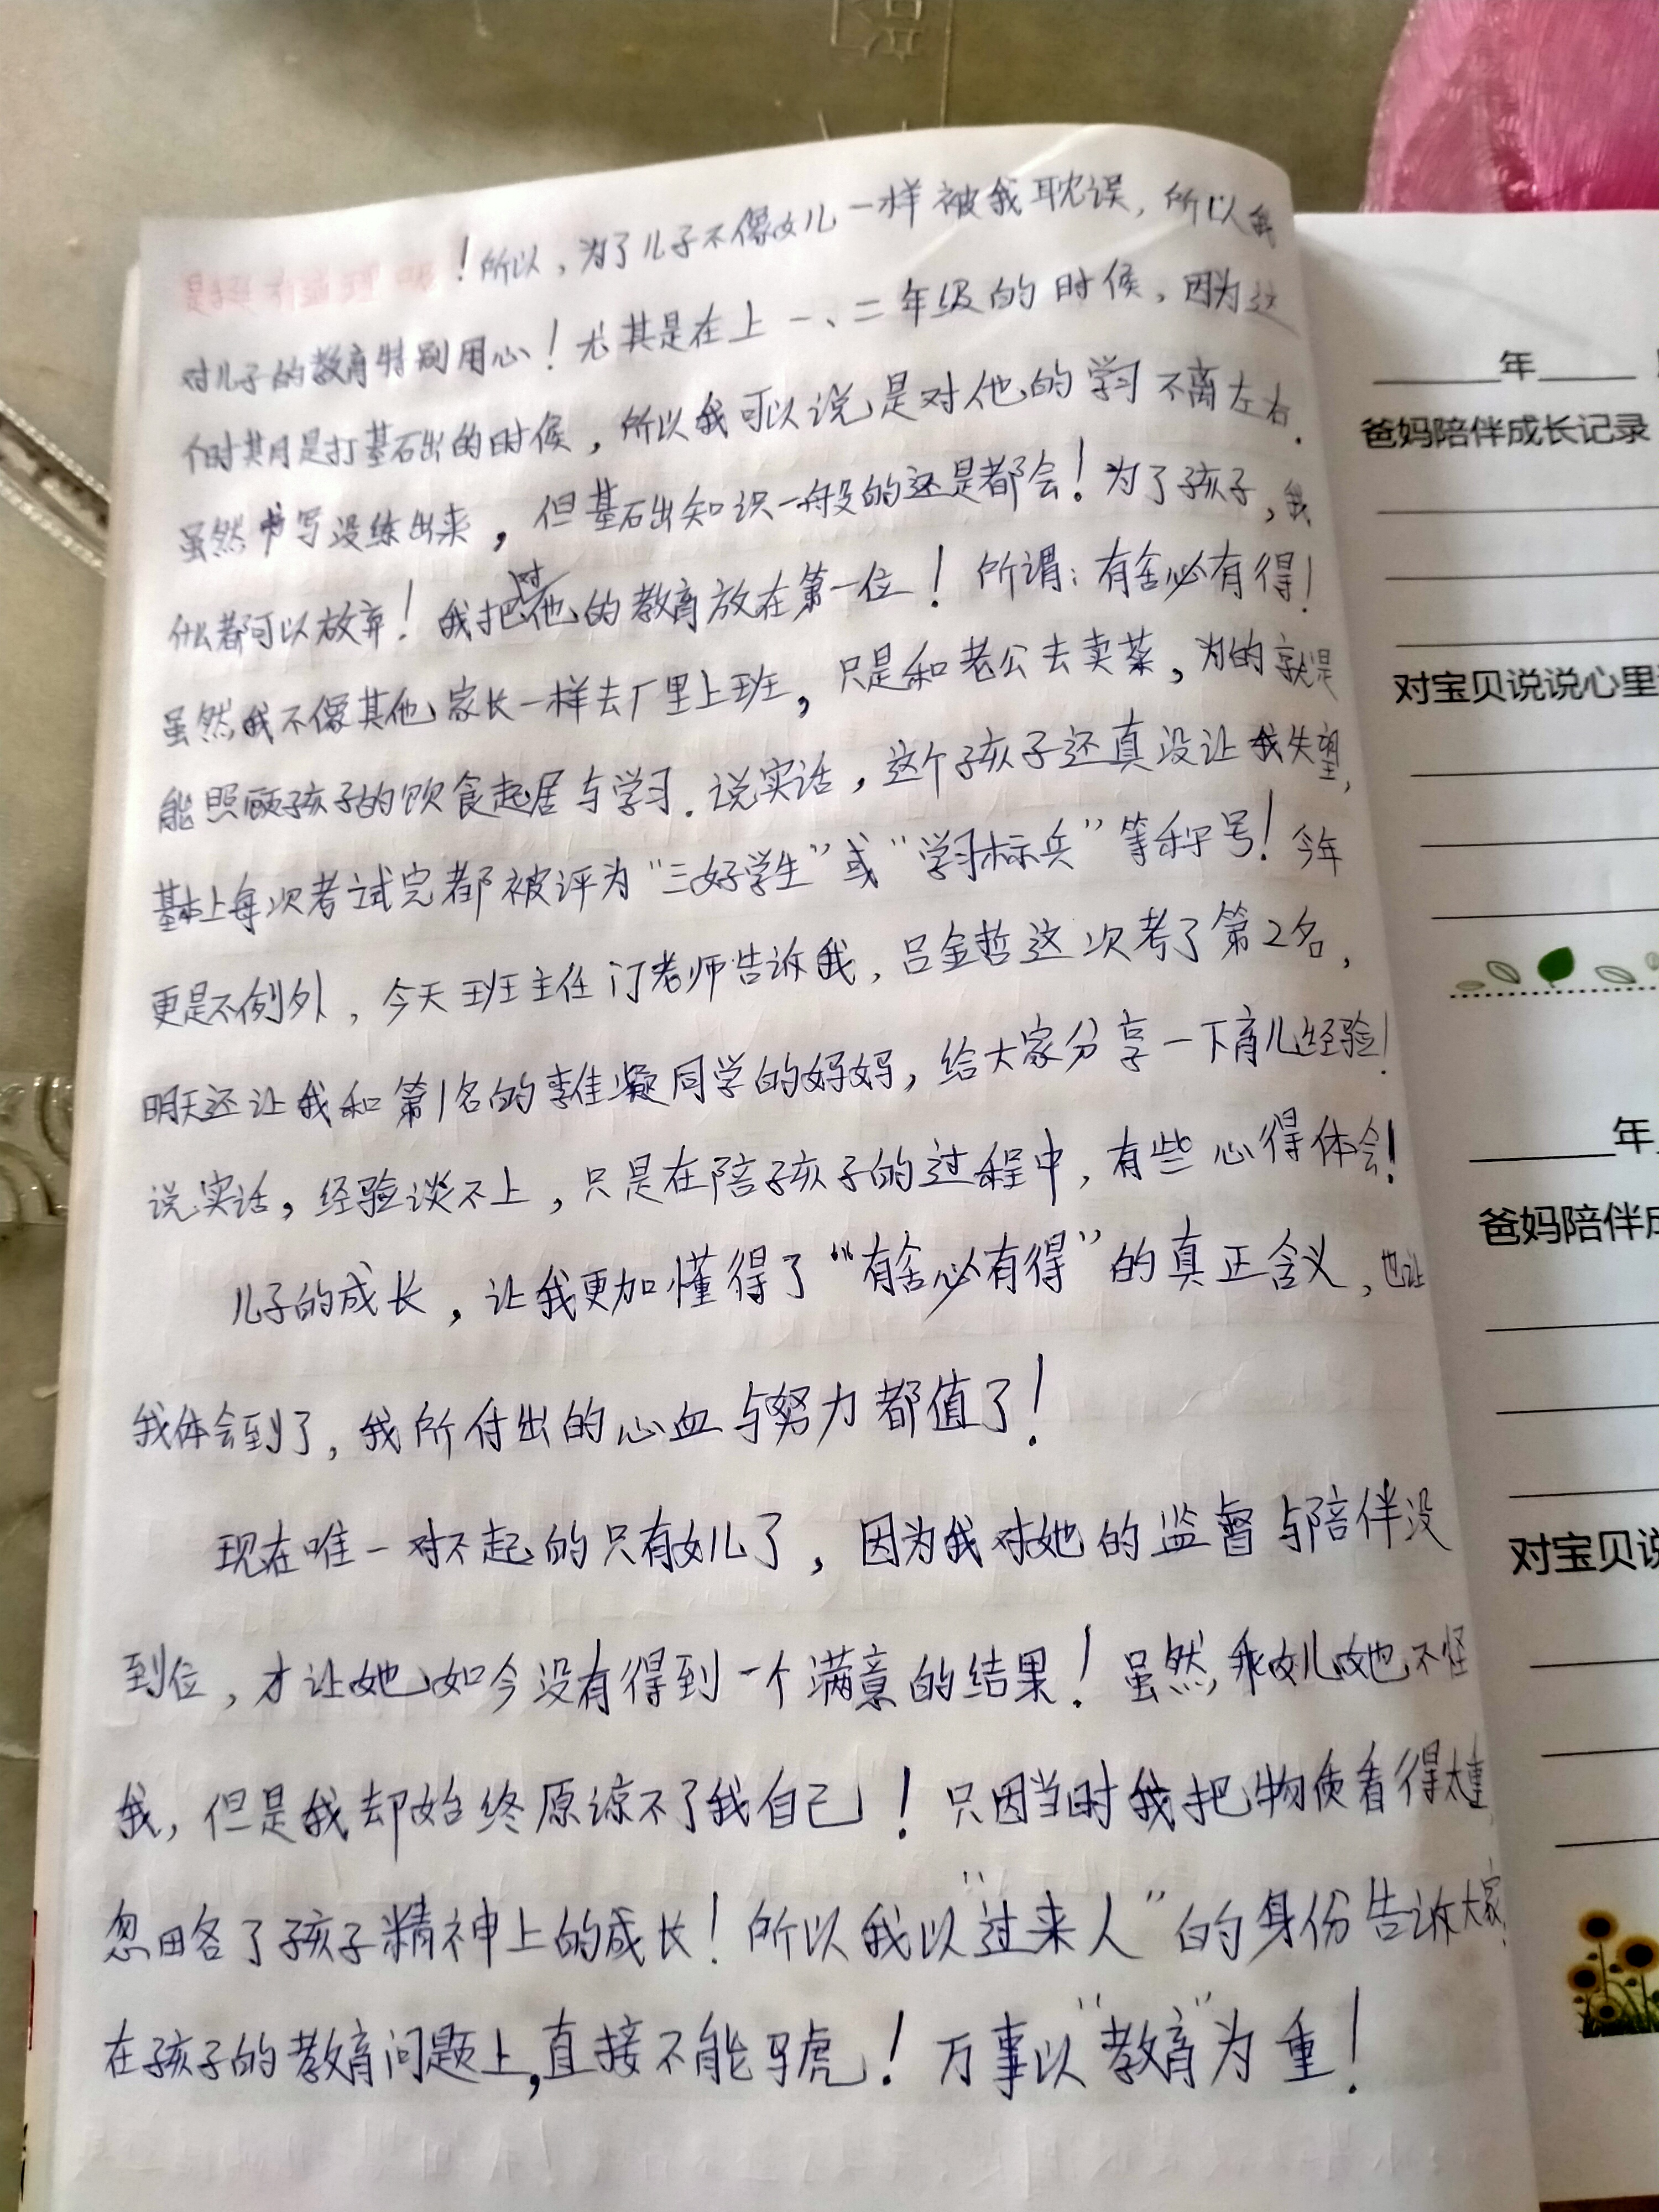 ！所以，为了儿子不像女儿一样被我耽误，所以我
对儿子的教育特别用心！尤其是在上一、二年级的时候，因为这
个时期是打基础的时候，所以我可以说是对他的学习不离左右.
虽然书写没练出来，但基础知识一般的还是都会！为了孩子，我
什么都可以放弃！我把对他的教育放在第一位！所谓：有舍必有得！
虽然我不像其他家长一样去厂里上班，只是和老公去卖菜，为的就是
能照顾孩子的饮食起居与学习.说实话，这个孩子还真没让我失望，
基本上每次考试完都被评为“三好学生”或“学习标兵”等称号！今年
更是不例外，今天班主任门老师告诉我，吕金哲这次考了第2名，
明天还让我和第1名的李佳凝同学的妈妈，给大家分享一下育儿经验！
说实话，经验谈不上，只是在陪孩子的过程中，有些心得体会！
儿子的成长，让我更加懂得了“有舍必有得”的真正含义，也让
我体会到了，我所付出的心血与努力都值了！
现在唯一对不起的只有女儿了，因为我对她的监督与陪伴没
到位，才让她如今没有得到一个满意的结果！虽然，乖女儿她不怪
我，但是我却始终原谅不了我自己！只因当时我把物质看得太重，
忽略了孩子精神上的成长！所以我以“过来人”的身份告诉大家，
在孩子的教育问题上，直接不能马虎！万事以“教育”为重！
年
爸妈陪伴成长记录
对宝贝说说心里
年
爸妈陪伴成
对宝贝说